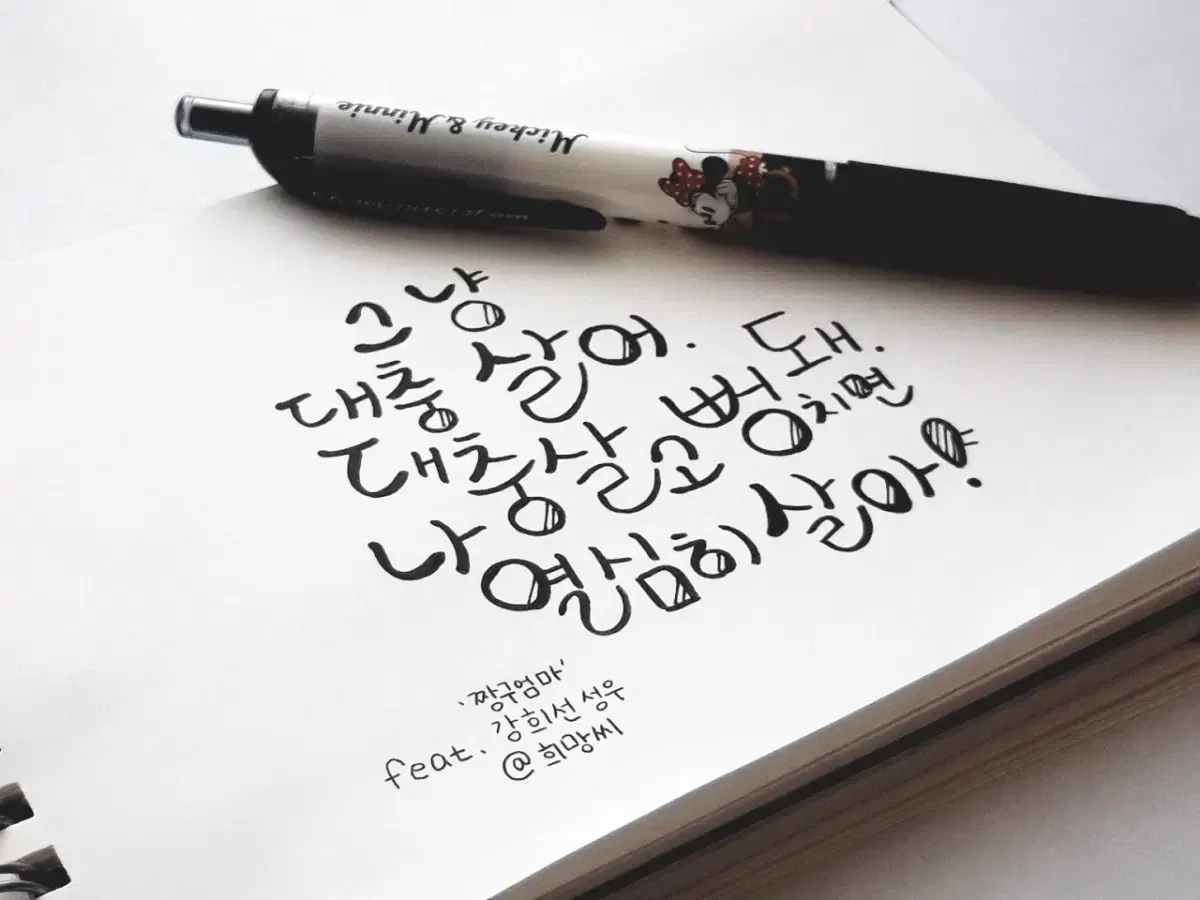 Mickey & Minnie
그냥
대충 살어.
대충살고 뻥치면 돼.
나 열심히 살아!
'짱구엄마'
feat. 강희선 성우
@희망씨